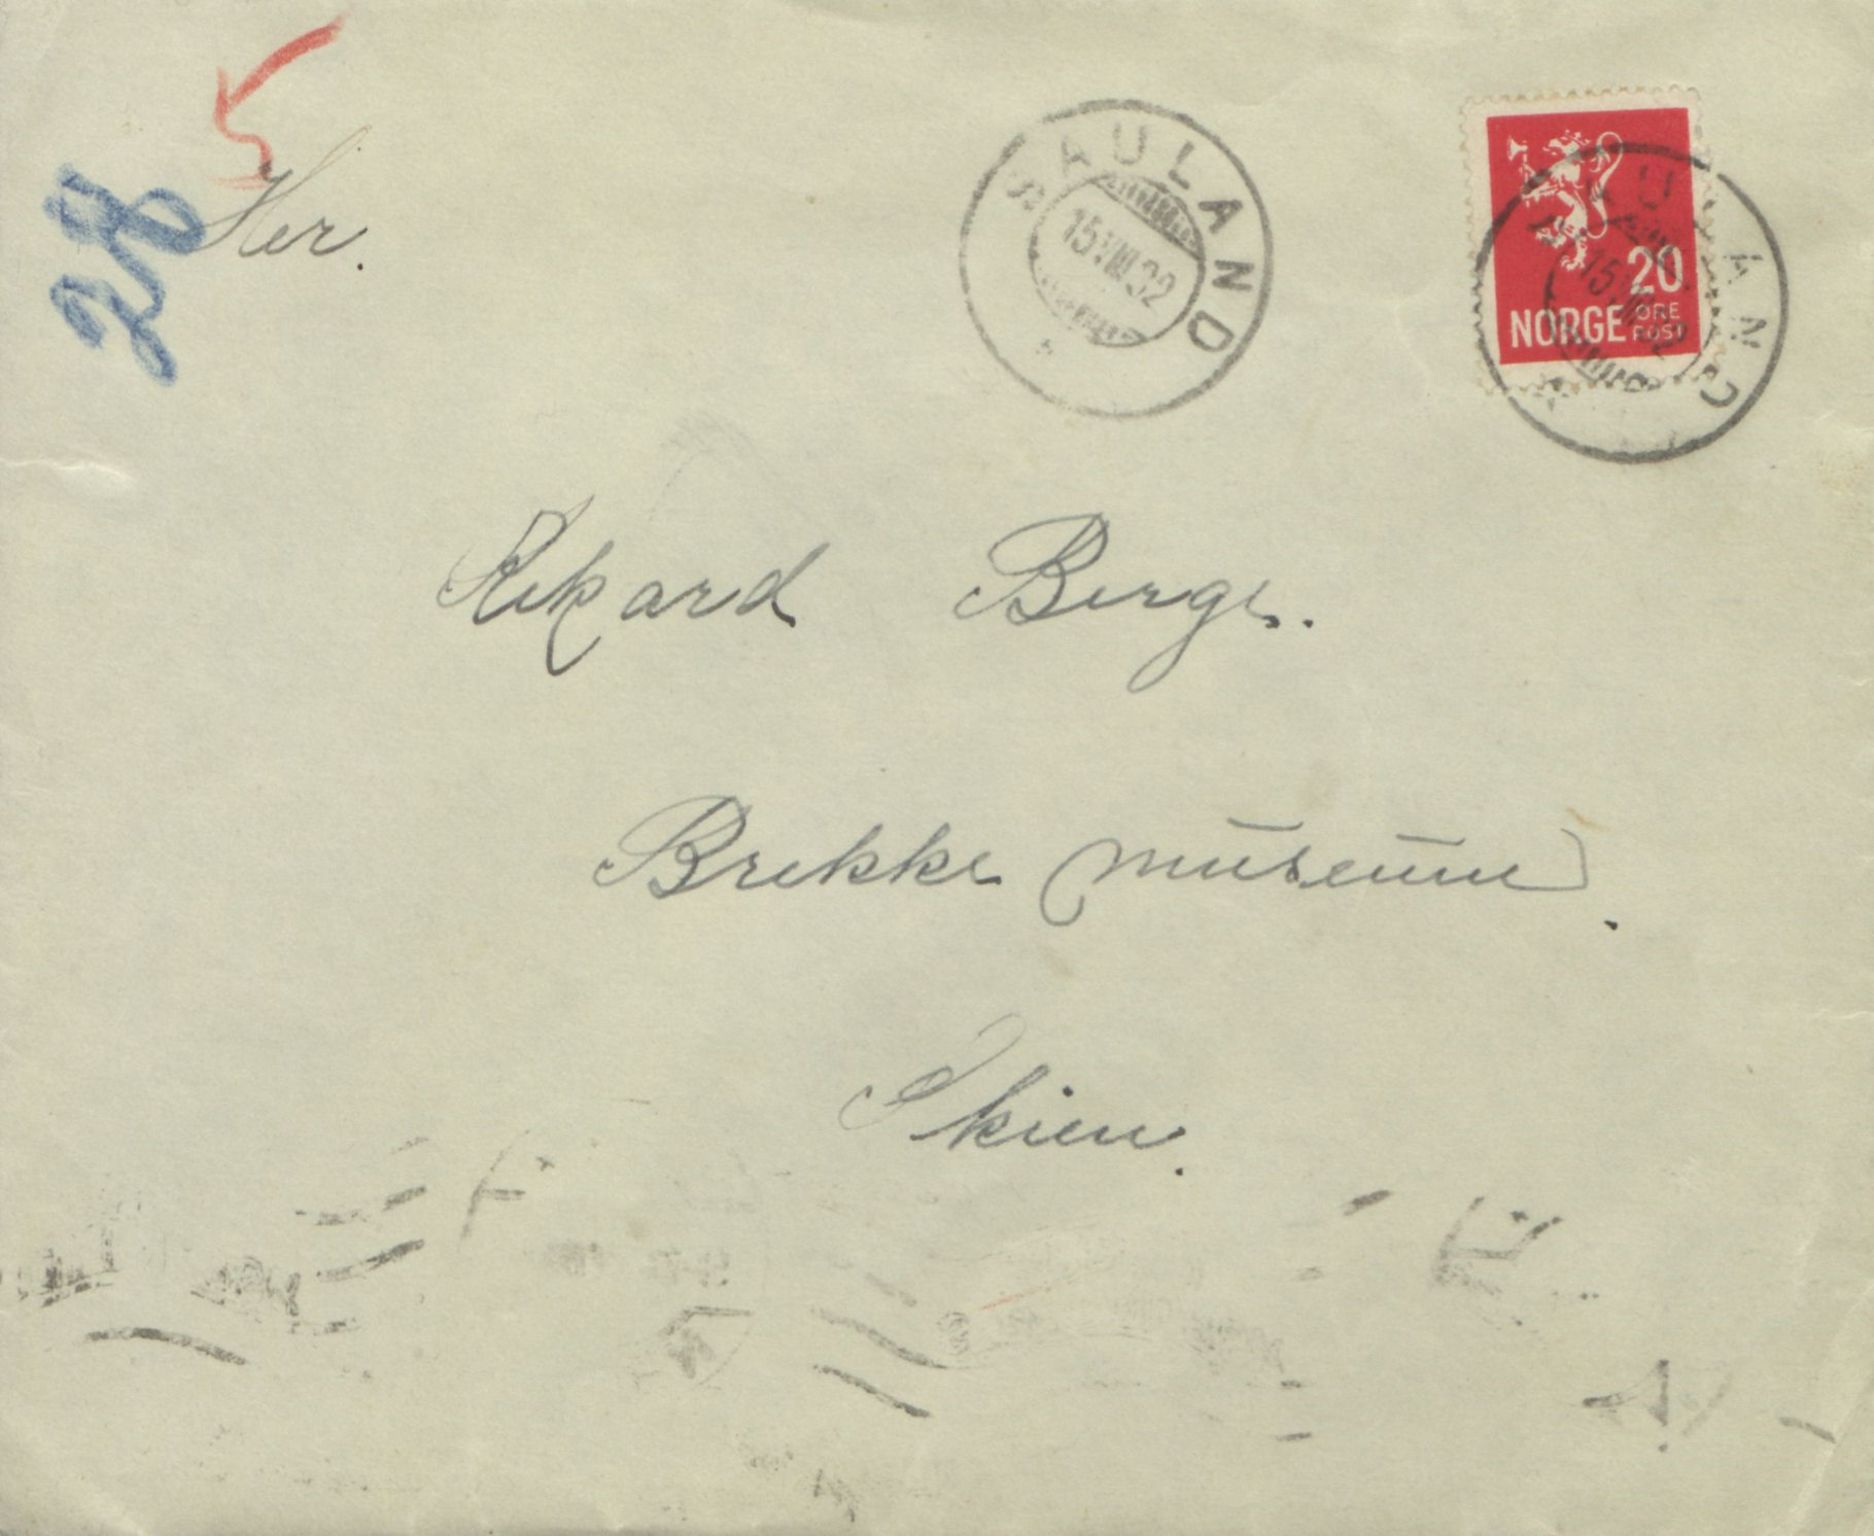 28
Her.
SAULAND
15 VIII 32
20
NORGE
ØRE
POST
Rikard Berge.
Brekke museum.
Skien.